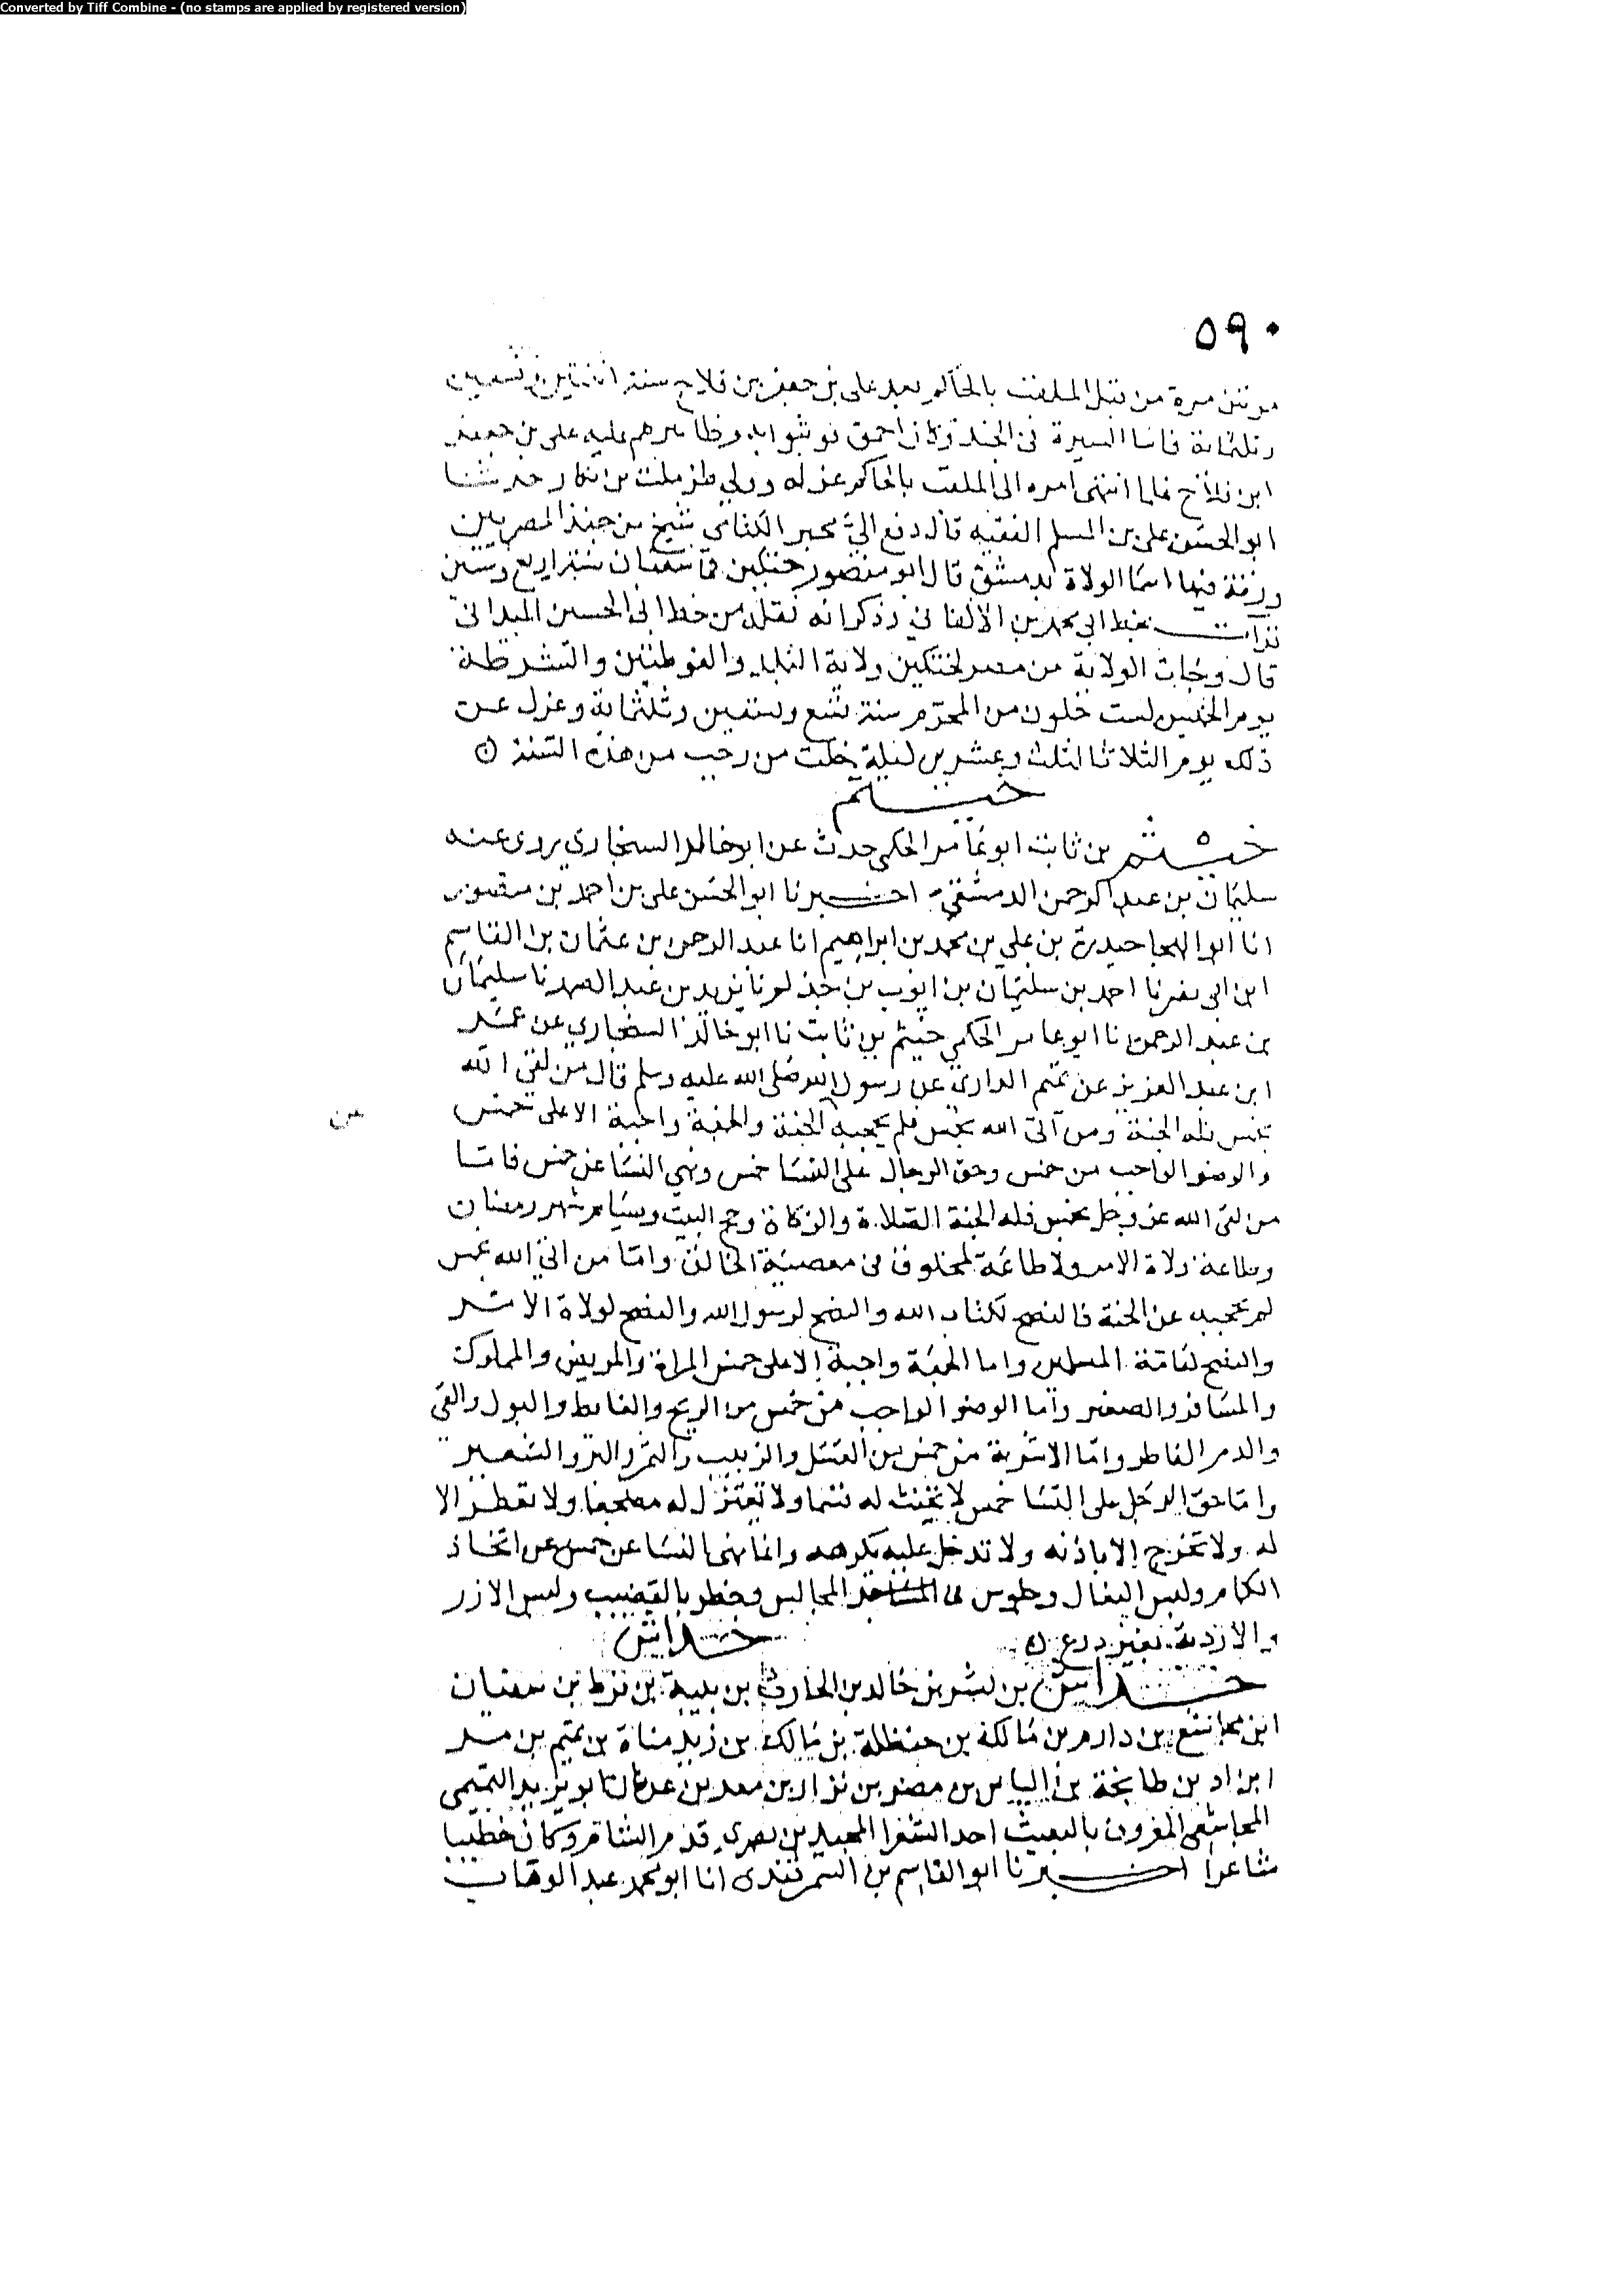 Converted by Tiff Combine - (no stamps are applied by registered version)
٥٩٠
مرتين مرة من قبل الملقب بالحاكم بعد علي بن جعفر بن فلاح سنة اثنتين وتسعين
وثلثمائة فاسا السيرة في الجند وكان احمق فوثبوا به وظاهرهم عليه علي بن جعفر
ابن فلاح فلما انتهى امره الى الملقب بالحاكم عزله وولي طزملت بن بكار حدثنا
ابو الحسن علي بن المسلم الفقيه قال دفع الي مجير الكتامي شيخ من جند المصريين
ورقة فيها اسما الولاة بدمشق قال ابو منصور ختكين في شعبان سنة اربع وستين
قرات بخط ابي محمد بن الاكفاني وذكر انه نقله من خط ابي الحسين الميداني
قال وجات الولاية من مصر لختكين ولاية البلد والغوطتين والشرطة
يوم الخميس لست خلون من المحرم سنة تسع وتسعين وثلثماية وعزل عن
ذلك يوم الثلاثا لثلث وعشرين ليلة خلت من رجب من هذه السنة ٥
خيثم
خيثم بن ثابت ابو عامر الحكمي حدث عن ابو خالد السنجاري يروى عنه
سليمان بن عبد الرحمن الدمشقي اخبرنا ابو الحسن علي بن احمد بن منصور
انا ابو الهجا حيدرة بن علي بن محمد بن ابراهيم انا عبد الرحمن بن عثمان بن القاسم
ابن ابي نصر نا احمد بن سليمان بن ايوب بن حذلم نا يزيد بن عبد الصمد نا سليمان
بن عبد الرحمن نا ابو عامر الحكمي خيثم بن ثابت نا ابو خالد السنجاري عن عمر
ابن عبد العزيز عن تميم الداري عن رسول الله صلى الله عليه وسلم قال من لقي الله
بخمس فله الجنة ومن اتى الله بخمس فلم يحجبه الجنة والجمعة واجبة الا على خمس
عن
والوضو الواجب من خمس وحق الرجال على النسا خمس ونهي النسا عن خمس فاما
من لقي الله عز وجل بخمس فله الجنة الصلاة والزكاة وحج البيت وصيام شهر رمضان
وطاعة ولاة الامر ولا طاعة لمخلوق في معصية الخالق واما من اتى الله بخمس
لم يحجبه عن الجنة فالنصح لكتاب الله والنصح لرسول الله والنصح لولاة الامر
والنصح لعامة المسلمين واما الجمعة واجبة الا على خمس المراة والمريض والمملوك
والمسافر والصغير واما الوضو الواجب من خمس من الريح والغائط والبول والقي
والدم القاطر واما الاشربة من خمس من العسل والزبيب والتمر والبر والشعير
واما حق الرجل على النسا خمس لا تحنث له قسما ولا تعتزل له مضجعا ولا تعطر الا
له ولا تخرج الا باذنه ولا تدخل عليه بكرهه وانما نهى النسا عن خمس عن اتخاذ
الكمام ولبس النعال وجلوس في المجالس وخطر بالقضيب ولبس الازر
والاردية بغير درع ٥
خداش
خداش بن بشر بن خالد بن الحارث بن بيبة بن قرط بن سفيان
ابن مجاشع بن دارم بن مالك بن حنظلة بن مالك بن زيد مناة بن تميم بن مر
ابن اد بن طابخة بن الياس بن مضر بن نزار بن معد بن عدنان ابو يزيد التميمي
المجاشعي المعروف بالبعيث احد الشعرا المجيدين بصري قدم الشام وكان خطيبا
شاعرا اخبرنا ابو القاسم بن السمرقندي انا ابو محمد عبد الوهاب